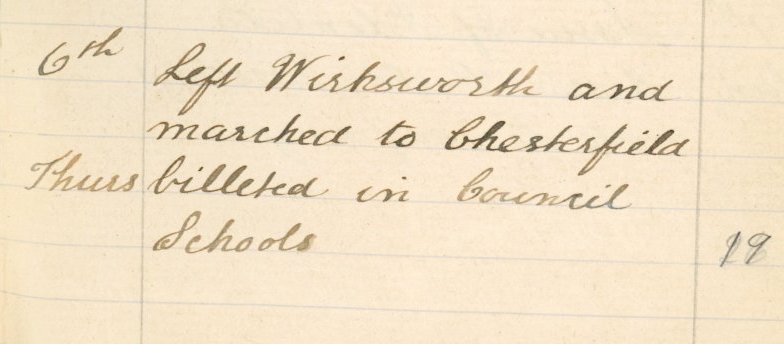 6th Left Wirksworth and
marched to Chesterfield
Thurs billeted in Council
Schools 19